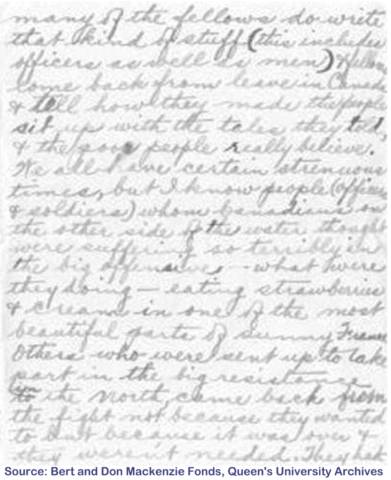 many of the fellows do write
that kind of stuff (this includes
officers as well as men) Fellows
come back from leave in Canada
& tell how they made the people
sit up with the tales they told
& the poor people really believe.
We all have certain strenuous
times, but I know people (officers
& soldiers) whom Canadians on
the other side of the water thought
were suffering so terribly in
the big offensive - what were
they doing - eating strawberries
& cream in one of the most
beautiful parts of sunny France
Others who were sent up to take
part in the big resistance
to the North, came back from
the fight not because they wanted
to but because it was over &
they weren't needed. They had
Source: Bert and Don Mackenzie Fonds, Queen's University Archives